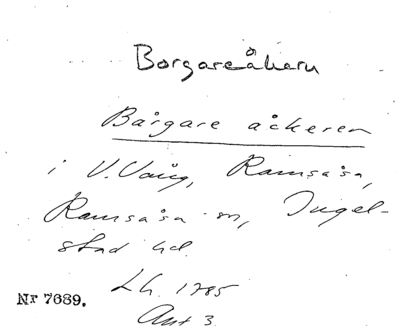 Borgareåkern
Bårgare åckeren
i V. Vång, Ramsåsa,
Ramsåsa sn, Ingel-
stad hd.
Lh. 1785
Akt 3.
Nr 7689.